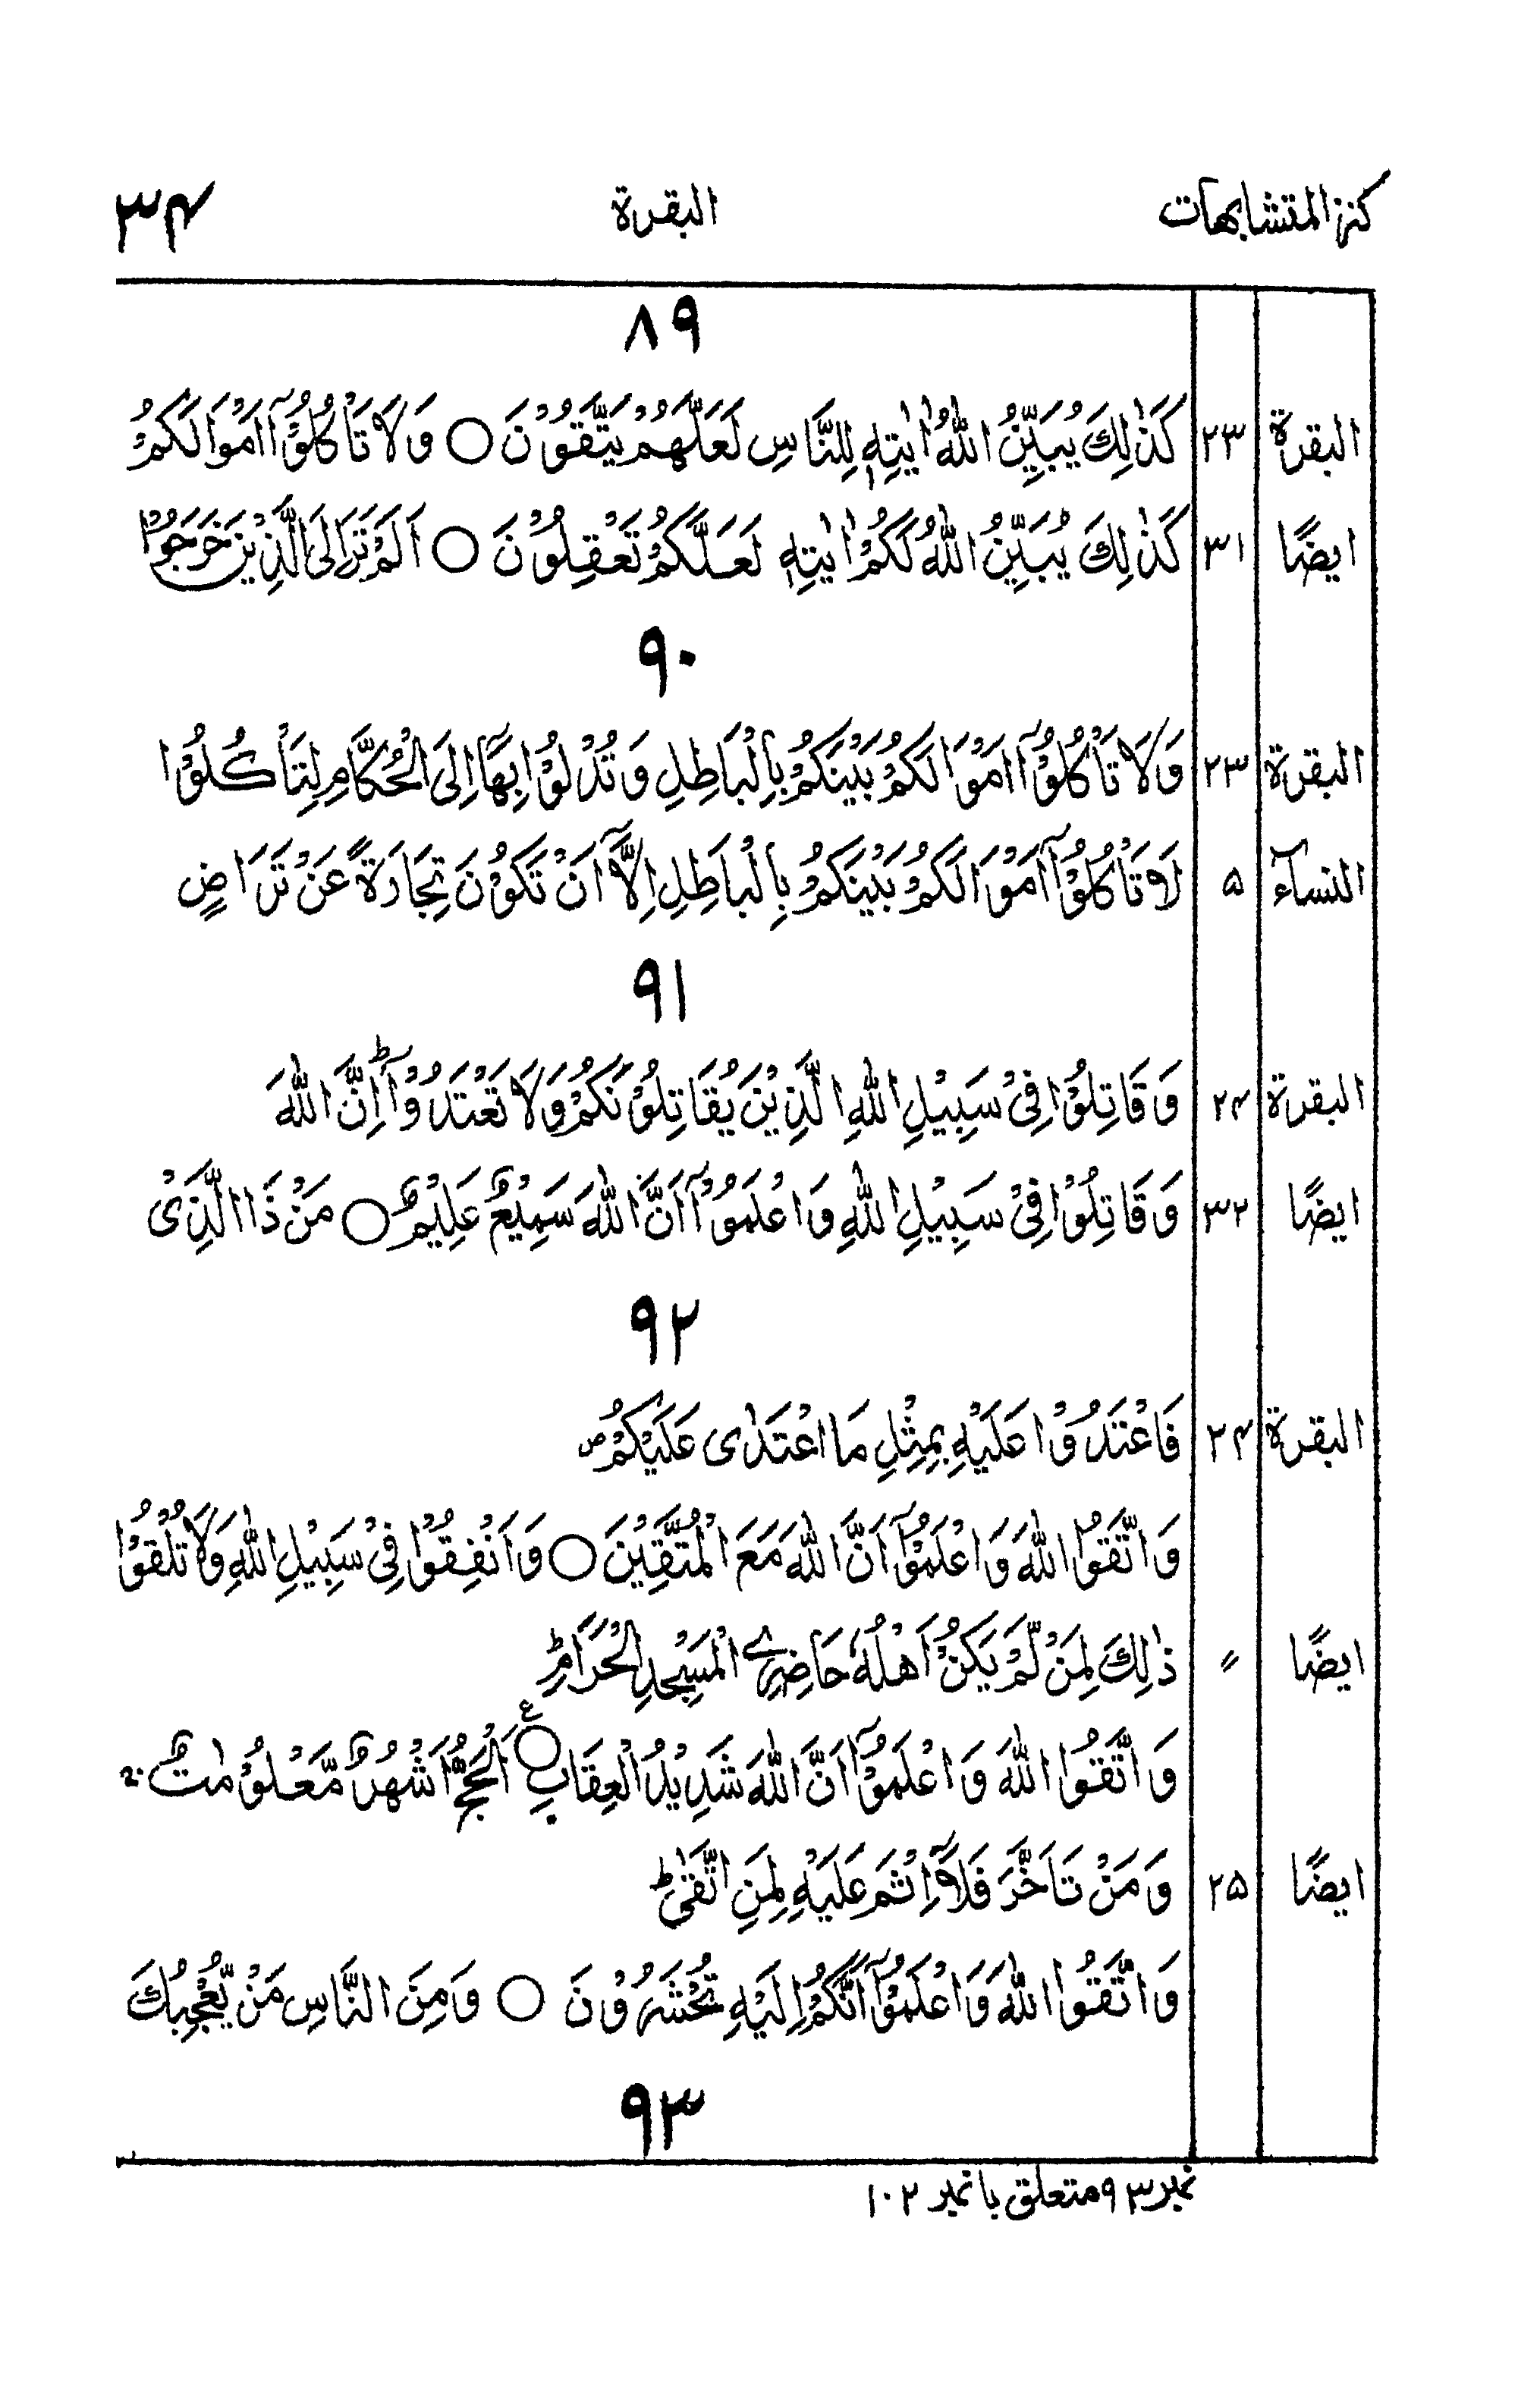 كنز المتشابهات البقرة ۳۴
۸۹
البقرة ۲۳ كَذٰلِكَ يُبَيِّنُ اللّٰهُ اٰيٰتِهٖ لِلنَّاسِ لَعَلَّهُمْ يَتَّقُوْنَ ○ وَلَا تَاْكُلُوْٓا اَمْوَالَكُمْ
ايضًا ۳۱ كَذٰلِكَ يُبَيِّنُ اللّٰهُ لَكُمْ اٰيٰتِهٖ لَعَلَّكُمْ تَعْقِلُوْنَ ○ اَلَمْ تَرَ اِلَى الَّذِيْنَ خَرَجُوْا
۹۰
البقرة ۲۳ وَلَا تَاْكُلُوْٓا اَمْوَالَكُمْ بَيْنَكُمْ بِالْبَاطِلِ وَتُدْلُوْا بِهَآ اِلَى الْحُكَّامِ لِتَاْكُلُوْا
النسآء ۵ لَا تَاْكُلُوْٓا اَمْوَالَكُمْ بَيْنَكُمْ بِالْبَاطِلِ اِلَّآ اَنْ تَكُوْنَ تِجَارَةً عَنْ تَرَاضٍ
۹۱
البقرة ۲۴ وَقَاتِلُوْا فِيْ سَبِيْلِ اللّٰهِ الَّذِيْنَ يُقَاتِلُوْنَكُمْ وَلَا تَعْتَدُوْا ؕ اِنَّ اللّٰهَ
ايضًا ۳۲ وَقَاتِلُوْا فِيْ سَبِيْلِ اللّٰهِ وَاعْلَمُوْٓا اَنَّ اللّٰهَ سَمِيْعٌ عَلِيْمٌ ○ مَنْ ذَا الَّذِىْ
۹۲
البقرة ۲۴ فَاعْتَدُوْا عَلَيْهِ بِمِثْلِ مَا اعْتَدٰى عَلَيْكُمْ ص
وَاتَّقُوا اللّٰهَ وَاعْلَمُوْٓا اَنَّ اللّٰهَ مَعَ الْمُتَّقِيْنَ ○ وَاَنْفِقُوْا فِيْ سَبِيْلِ اللّٰهِ وَلَا تُلْقُوْا
ايضًا ״ ذٰلِكَ لِمَنْ لَّمْ يَكُنْ اَهْلُهٗ حَاضِرِى الْمَسْجِدِ الْحَرَامِ ؕ
وَاتَّقُوا اللّٰهَ وَاعْلَمُوْٓا اَنَّ اللّٰهَ شَدِيْدُ الْعِقَابِ ○ ع اَلْحَجُّ اَشْهُرٌ مَّعْلُوْمٰتٌ ۚ
ايضًا ۲۵ وَمَنْ تَاَخَّرَ فَلَآ اِثْمَ عَلَيْهِ لِمَنِ اتَّقٰى ؕ
وَاتَّقُوا اللّٰهَ وَاعْلَمُوْٓا اَنَّكُمْ اِلَيْهِ تُحْشَرُوْنَ ○ وَمِنَ النَّاسِ مَنْ يُّعْجِبُكَ
۹۳
نمبر ۹۳ متعلق بانمبر ۱۰۲